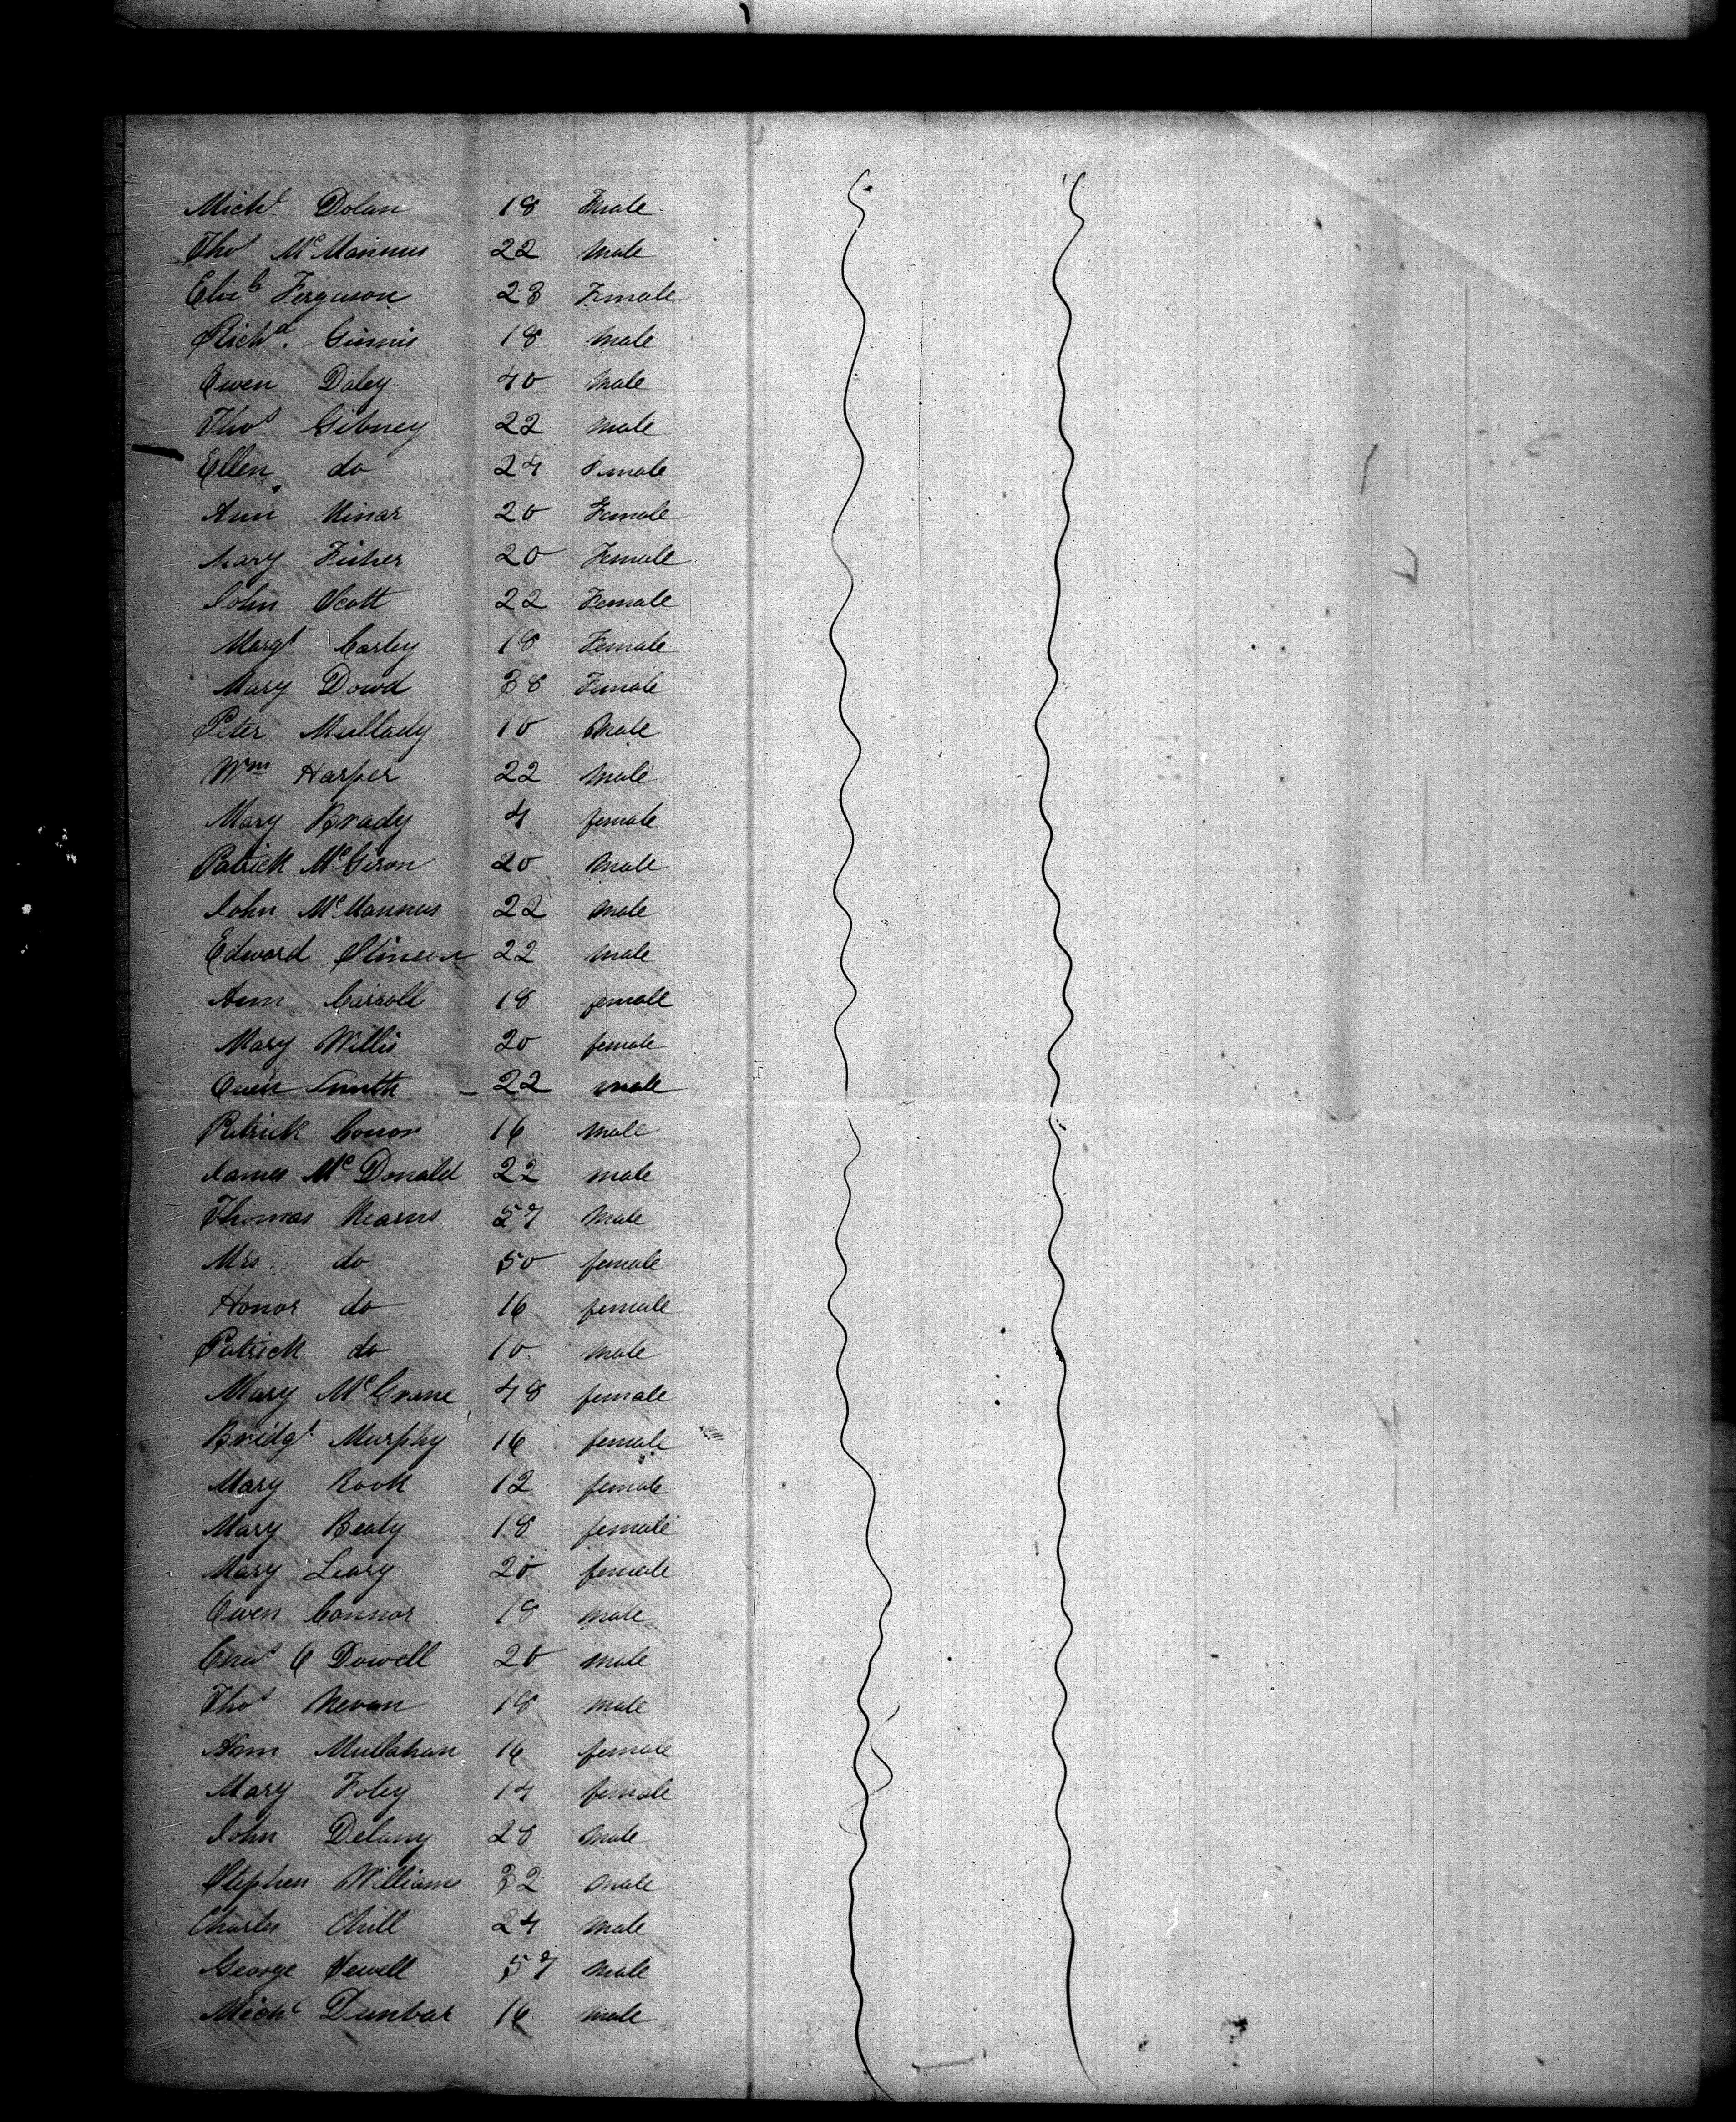 Michl. Dolan 18 male
Thos McMannus 22 male
Elizh Ferguson 23 Female
Richd. Ginnis 18 male
Owen Daley 40 male
Thos Gibney 22 male
Ellen do 24 Female
Ann Minar 20 Female
Mary Fisher 20 Female
John Scott 22 Female
Margt Carley 18 Female
Mary Dowd 38 Female
Peter Mullady 10 male
Wm Harper 22 male
Mary Brady 4 female
Patrick McGiron 20 male
John McMannus 22 male
Edward Stinson 22 male
Ann Carroll 18 female
Mary Willis 20 female
Owen Smith 22 male
Patrick Conor 16 male
James McDonald 22 male
Thomas Kearns 57 male
Mrs. do 50 female
Honor do 16 female
Patrick do 10 male
Mary McGrane 48 female
Bridgt Murphy 16 female
Mary Rook 12 female
Mary Beaty 18 female
Mary Leary 20 female
Owen Connor 18 male
Chas O Dowell 20 male
Thos Nevan 18 male
Ann Mullahan 16 female
Mary Foley 14 female
John Delany 28 male
Stephen Williams 32 male
Charles 24 male
George Sewell 57 male
Michl Dunbar 16 male